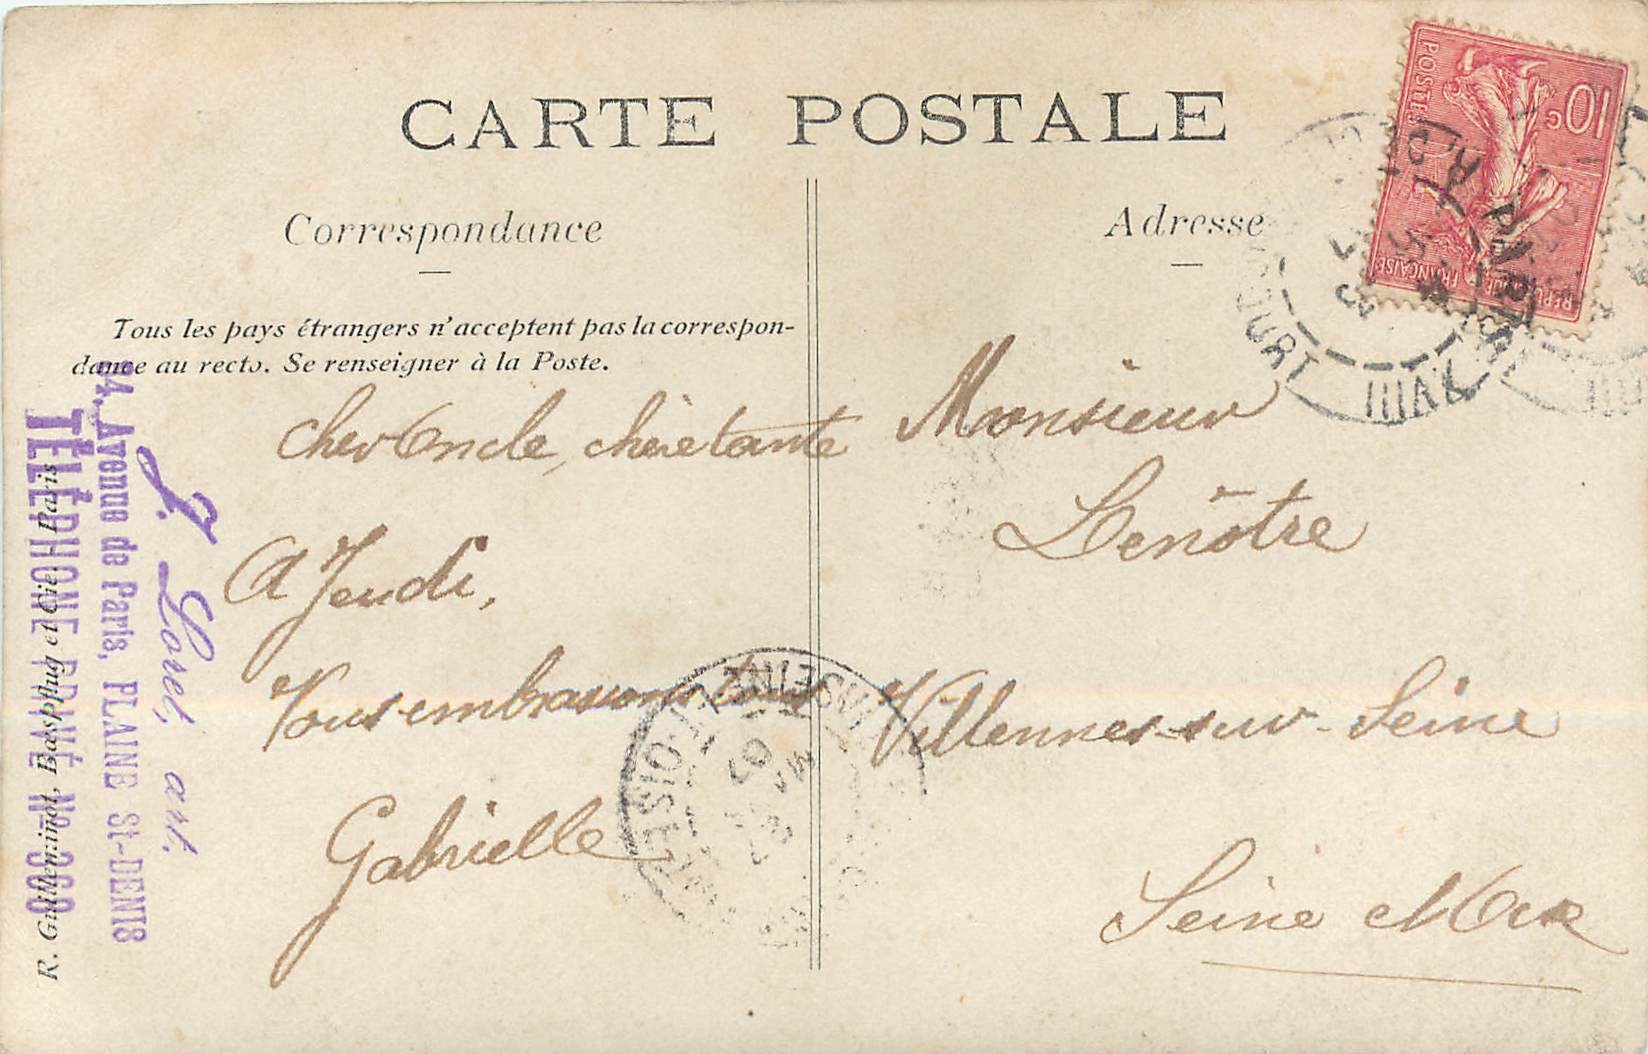 CARTE POSTALE
Correspondance
Adresse
Tous les pays étrangers n'acceptent pas la correspon-
dance au recto. Se renseigner à la Poste.
cher Oncle, chère tante
A Jeudi,
Vous embrassons tous
Gabrielle
Monsieur
Lenôtre
Villennes-sur-Seine
Seine et Oise
10c
POSTES
REPUBLIQUE FRANÇAISE
PARIS
XVIII
J. Loret, art.
94, Avenue de Paris, PLAINE St-DENIS
TÉLÉPHONE PRIVÉ No
R. Guilleminot, Bœspflug et Cie Paris